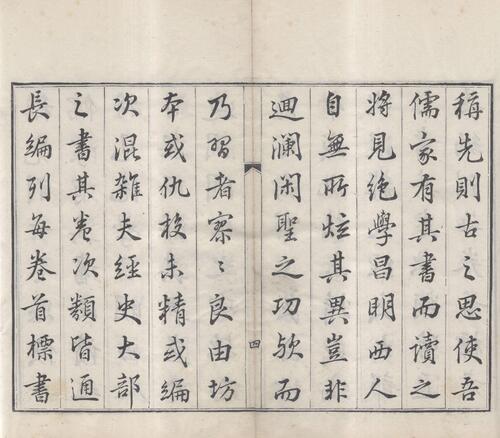 稱先則古之思使吾
儒家有其書而讀之
將見絶學昌明西人
自無所炫其異豈非
迴瀾閑聖之功歟而
四
乃習者寥〻良由坊
本或仇校未精或編
次混雜夫經史大部
之書其卷次類皆通
長編列每卷首標書